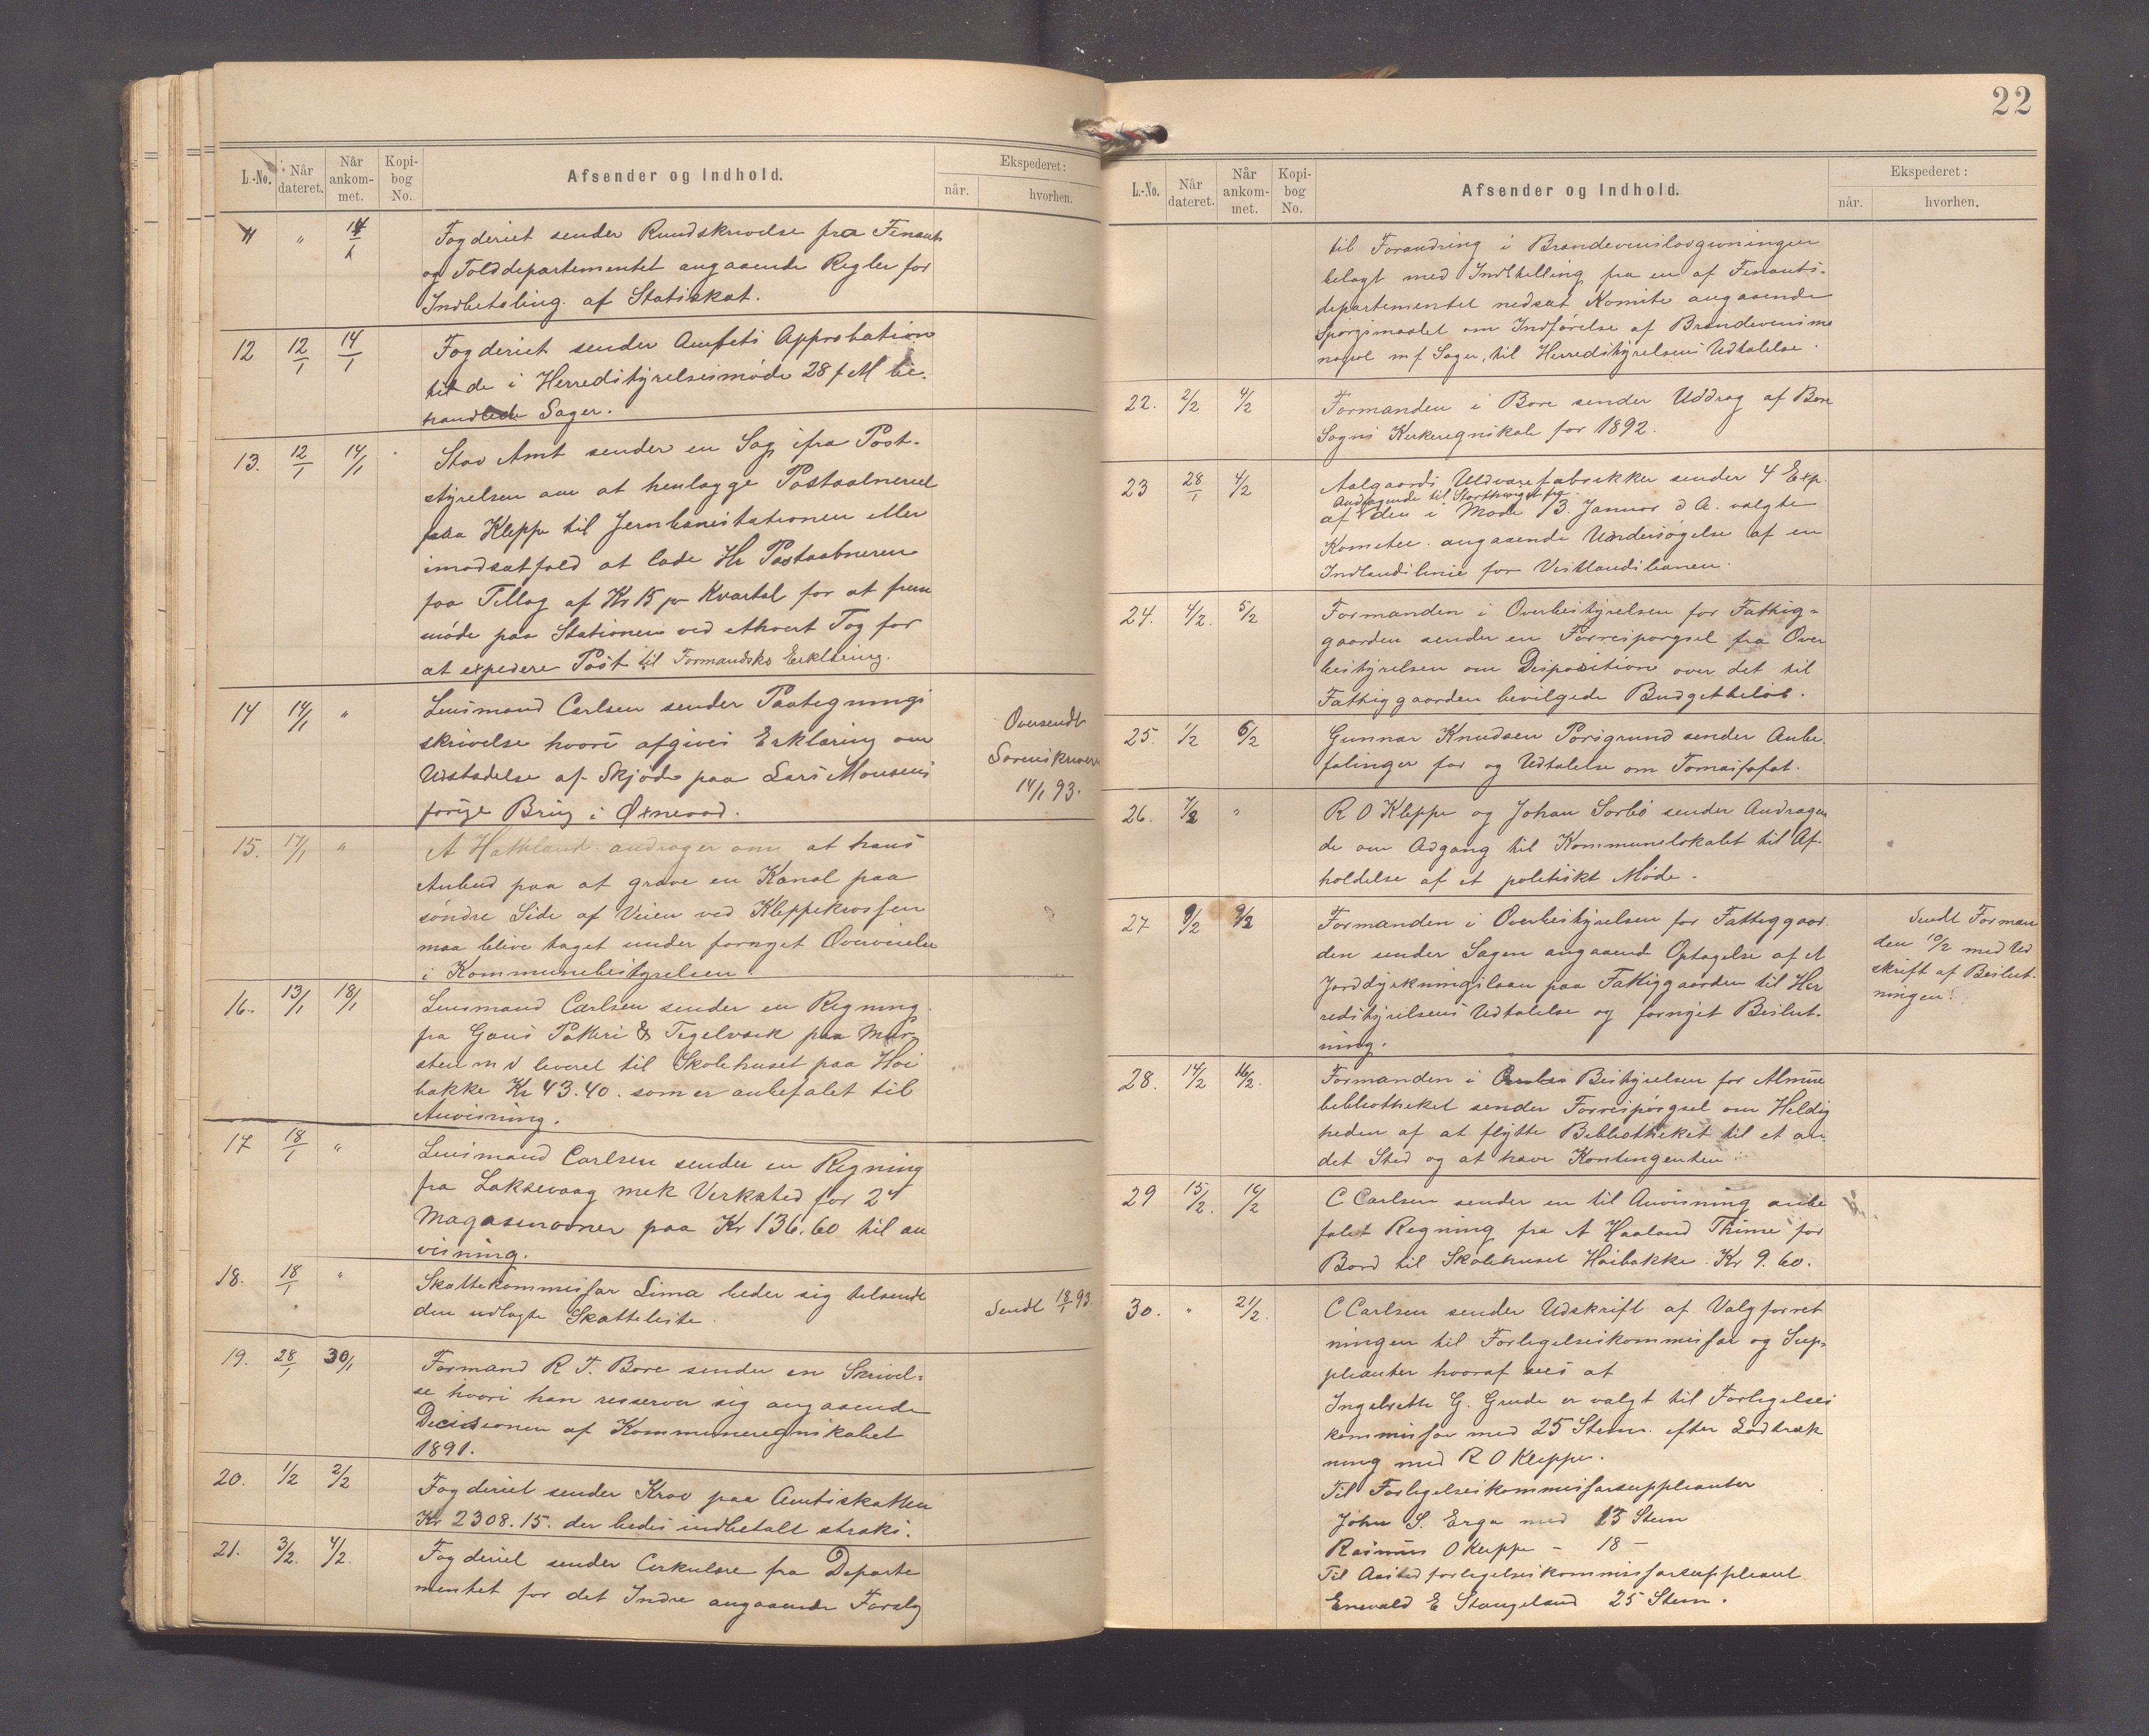 L.-No. Når dateret. Når ankom- met. Kopi- bog No. Afsender og Indhold. Ekspederet: når. hvorhen.
11 " 14/1 Fogderiet sender Rundskrivelse fra Finants
og Tolddepartementet angaaende Regler for
Indbetaling af Statsskat.
12 12/1 14/1 Fogderiet sender Amtets Approbation
til de i Herredstyrelsesmøde 28 f M be-
handlede Sager.
13. 12/1 14/1 Stav Amt sender en Sag ifra Post-
styrelsen om at henlægge Postaabneriet
paa Kleppe til Jernbanestationen eller
imodsatfald at lade Hr Postaabneren
faa Tillæg af Kr 15 pr Kvartal for at frem
møde paa Stationen ved ethvert Tog for
at expedere Post til Formandsks Erklæring.
14 14/1 " Lensmand Carlsen sender Paategnings
skrivelse hvori afgives Erklæring om
Udstædelse af Skjøde paa Lars Monsens
forige Brug i Øxnevad.
Oversendt
Sorenskriveren
14/1 93.
15. 17/1 " A Hatteland andrager om at hans
Anbud paa at grave en Kanal paa
søndre Side af Veien ved Kleppekrossen
maa blive taget under fornyet Overveielse
i Kommunebestyrelsen.
16. 13/1 18/1 Lensmand Carlsen sender en Regning
fra Gans Potteri & Tegelværk paa Mur-
sten m v leveret til Skolehuset paa Høi
bakke Kr 43.40. som er anbefalet til
Anvisning.
17 18/1 " Lensmand Carlsen sender en Regning
fra Laksevaag mek Verksted for 2
Magasinovner paa Kr 136.60 til an
visning.
18. 18/1 " Skattekommissær Lima beder sig tilsendt
den udlagte Skatteliste.
Sendt 18/1 93.
19. 28/1 30/1 Formand R T. Bore sender en Skrivel-
se hvori han reserver sig angaaende
Decisionen af Kommuneregnskabet
1891.
20. 1/2 2/2 Fogderiet sender Krav paa Amtsskatten
Kr 2308.15. der bedes indbetalt straks.
21. 3/2. 4/2. Fogderiet sender Cirkulære fra Departe
mentet for det Indre angaaende Forslag
22
L.-No. Når dateret. Når ankom- met. Kopi- bog No. Afsender og Indhold. Ekspederet: når. hvorhen.
til Forandring i Brændevinslovgivningen
belagt med Indstilling fra en af Finants-
departementet nedsat Komite angaaende
Spørgsmaalet om Indførelse af Brændevinsmo
nopol m f Sager, til Herredstyrelsens Udtalelse.
22. 2/2 4/2 Formanden i Bore sender Uddrag af Bore
Sogns Kirkeregnskab for 1892.
23 28/1 4/2 Aalgaards Uldvarefabrikker sender 4 Exp.
Andragende til Storthinget fra
af den i Møde 13. Januar d A. valgte
Komitee angaaende Undersøgelse af en
Indlandslinie for Vestlandsbanen.
24. 4/2. 5/2 Formanden i Overbestyrelsen for Fattig-
gaarden sender en Forrespørgsel fra Over
bestyrelsen om Disposition over det til
Fattiggaarden bevilgede Budgetbeløb.
25. 1/2 6/2 Gunnar Knudsen Porsgrund sender Anbe
falinger for og Udtalelse om Tomasfosfat.
26. 7/2 " R O Kleppe og Johan Sørbø sender Andragen
de om Adgang til Kommunelokalet til Af-
holdelse af et politiskt Møde.
27 9/2 9/2 Formanden i Overbestyrelsen for Fattiggaar
den sender Sagen angaaend Optagelse af et
Jorddyrkningslaan paa Fattiggaarden til Her
redstyrelsens Udtalelse og fornyet Beslut-
ning.
Sendt Forman
den 10/2 med Ud
skrift af Beslut-
ningen.
28. 14/2 16/2. Formanden i Bestyrelsen for Almue
bibliotheket sender Forrespørgsel om Heldig
heden af at flytte Bibliotheket til et an
det Sted og at hæve Kontingenten.
29 15/2. 16/2 C Carlsen sender en til Anvisning anbe
falet Regning fra A Haaland Thime for
Bord til Skolehuset Høibakke. Kr 9.60.
30. " 21/2. C Carlsen sender Udskrift af Valgforret
ningen til Forligelseskommissær og Sup-
pleanter hvoraf sees at
Ingebrette G. Grude er valgt til Forligelses
kommissær med 25 Stem. efter Lodtræk
ning med R O Kleppe.
Til Forligelseskommissærsuppleanter
John S. Erga med 23 Stem
Rasmus O Kleppe - 18 -
Til Aastedforligelseskommissærsuppleant
Enevald E Stangeland 25 Stem.